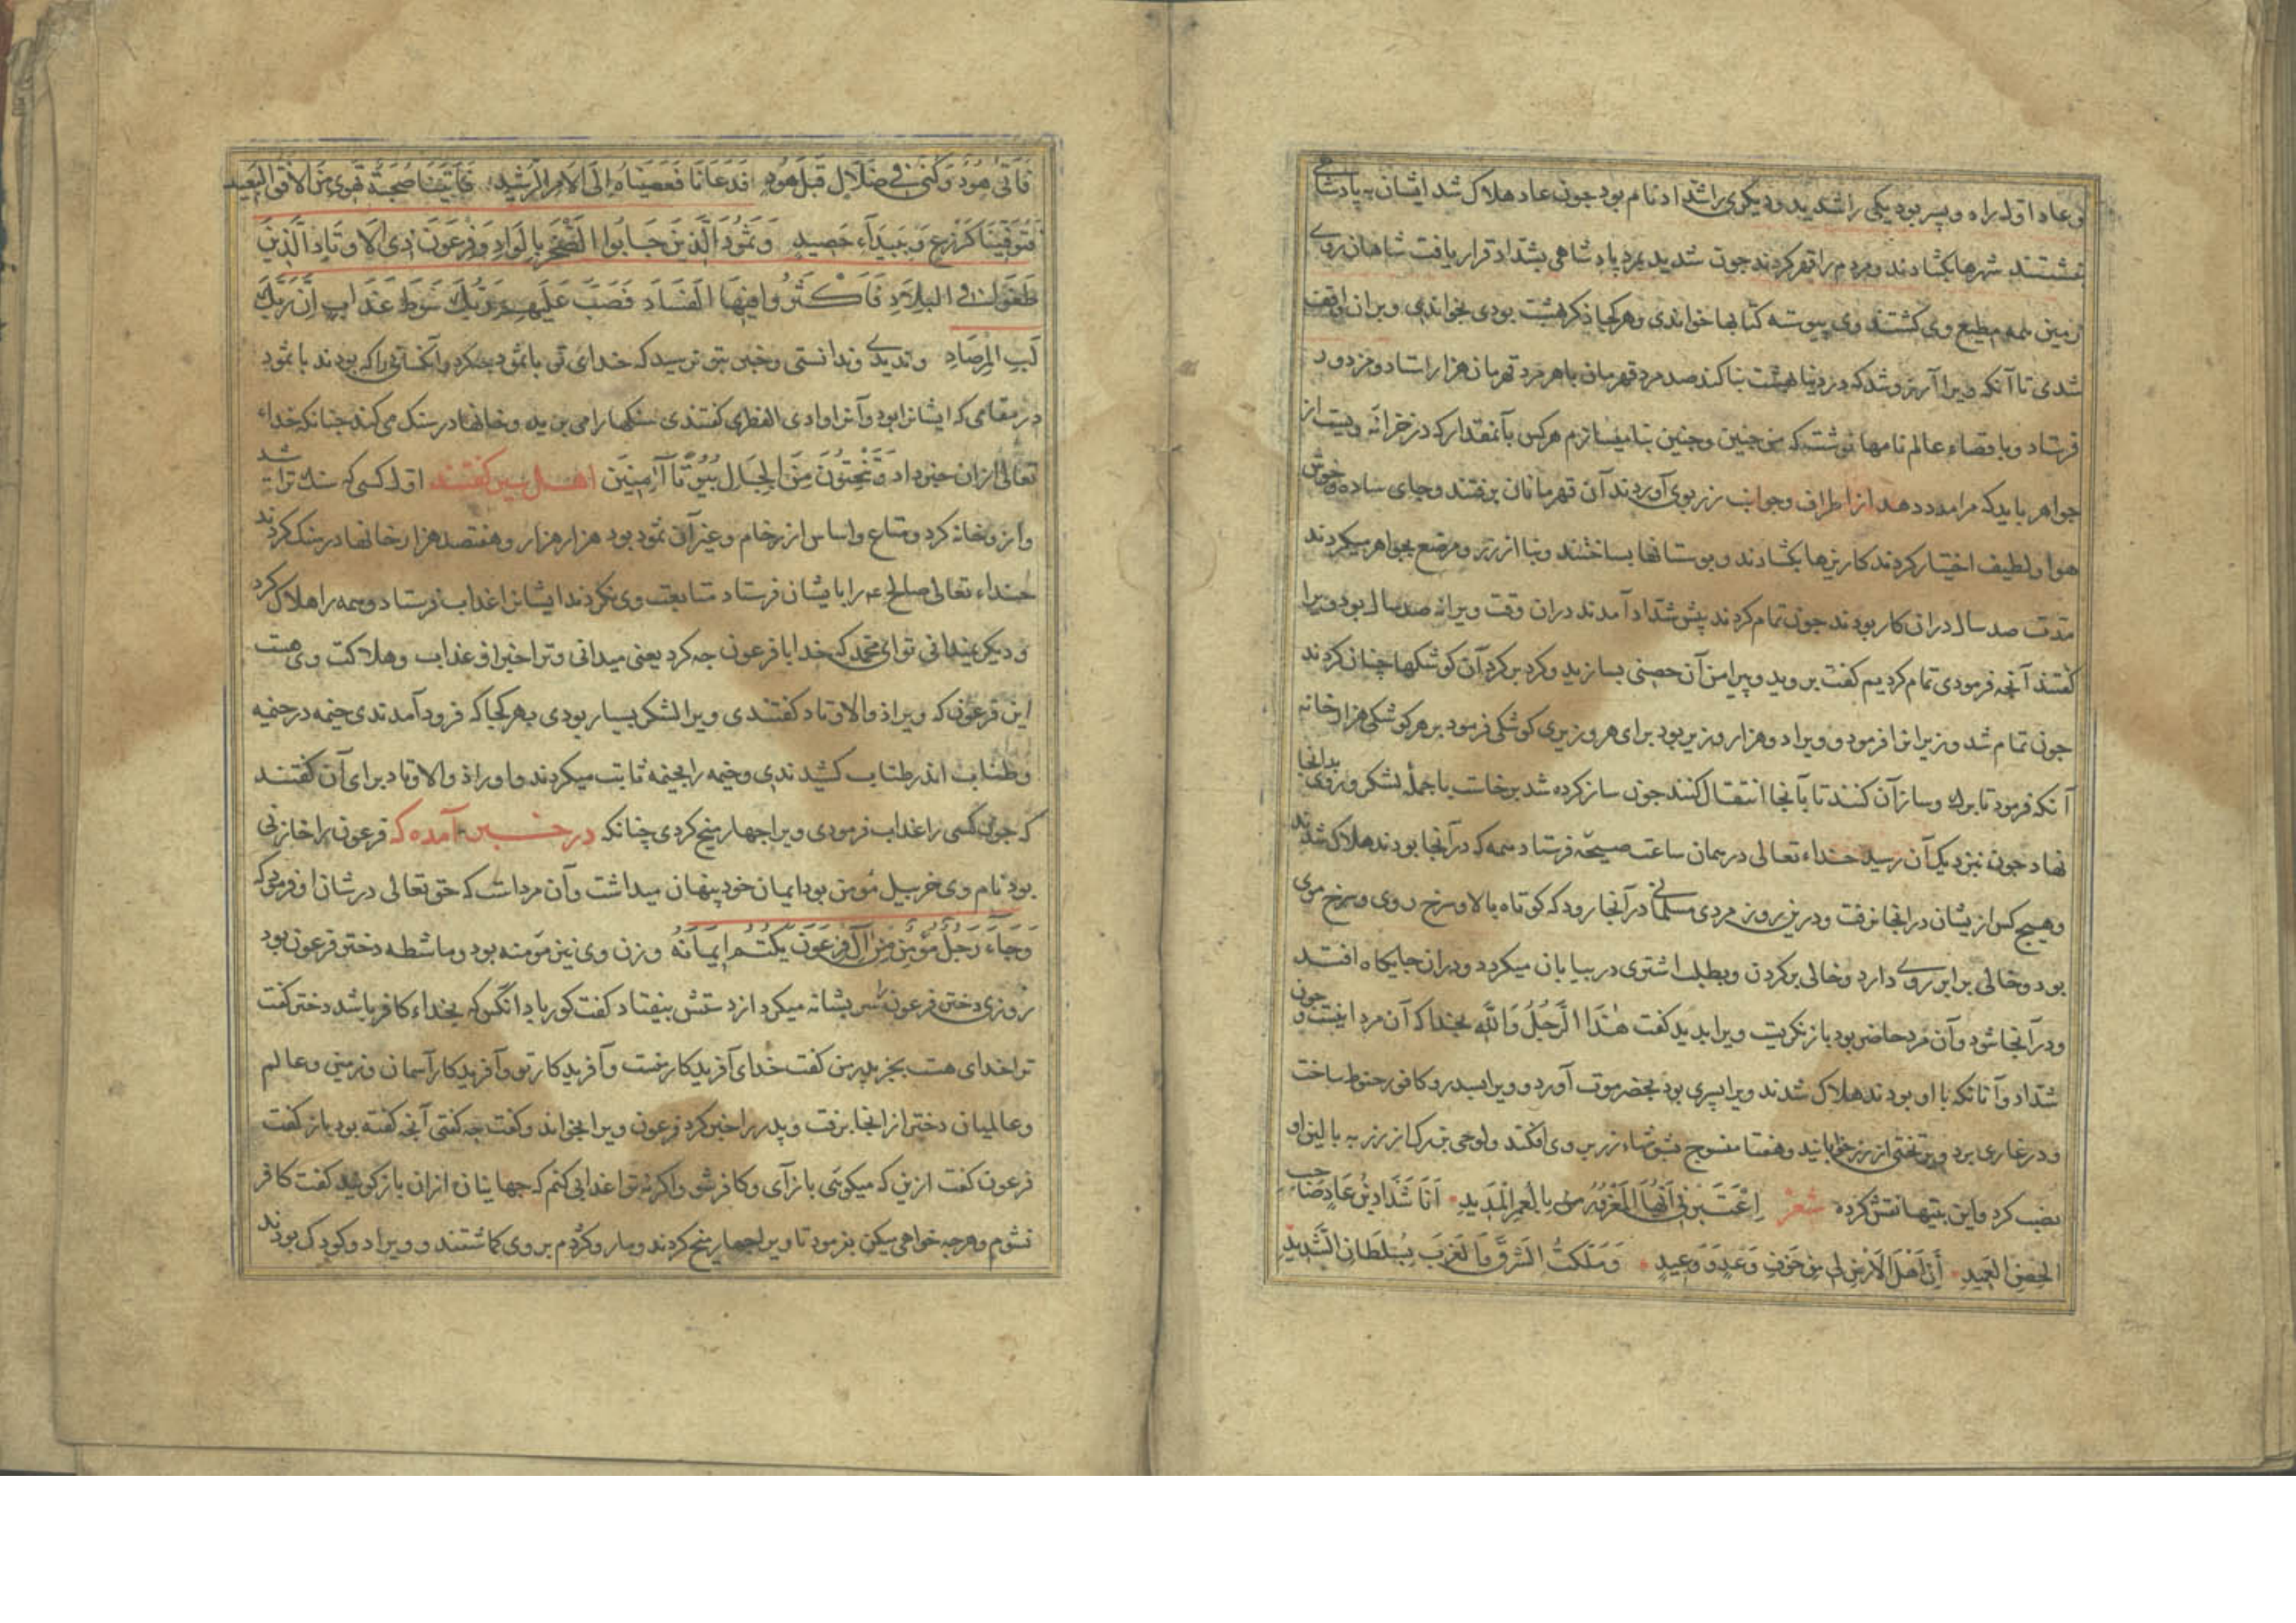 و عاد اول را دو پسر بود یکی را شدید و دیگری را شداد نام بود جون عاد هلاک شد ایشان به پادشاهی
نشستند شهرها بکشادند و مردم را قهر کردند جون شدید بمرد پادشاهی بشداد قرار یافت شاهان روی
زمین همه مطیع وی کشتند وی پیوسته کتابها خواندی و هر کجا ذکر بهشت بودی بخواندی و بران واقف
شدی تا آنکه ویرا آرزو شد که در دنیا بهشت بنا کند صد مرد قهرمان با هر مرد قهرمان هزار استاد و مزدور
فرستاد و باقصاء عالم نامها نوشت که من جنین و جنین بنا میسازم هرکس بآنمقدار که در خزانه ویست از
جواهر باید که مرا مدد دهد از اطراف و جوانب زر بوی آوردند آن قهرمانان برفتند و جای ساده و خوش
هوا و لطیف اختیار کردند کاریزها بکشادند و بوستانها بساختند و بنا از زر و مرصع بجواهر میکردند
مدت صد سال دران کار بودند جون تمام کردند پیش شداد آمدند دران وقت ویرا صد سال بود ویرا
کفتند آنجه فرمودی تمام کردیم کفت بروید و پیرامن آن حصنی بسازید و کرد بر کرد آن کوشکها چنان کردند
جون تمام شد وزیرانرا فرمود و ویرا دو هزار وزیر بود برای هر وزیری کوشکی فرمود بر هر کوشکی هزار خانه
آنکه فرمود تا برک و ساز آن کنند تا بآنجا انتقال کنند جون ساز کرده شد برخاست با جملهٔ لشکر و روی بدانجا
نهاد جون نزدیک آن رسید خداء تعالی در همان ساعت صیحهٔ فرستاد همه که در آنجا بودند هلاک شدند
و هیچ کس ازیشان در انجا نرفت و درین روز مردی مسلمانی در آنجا رود که کوتاه بالا و سرخ روی و سرخ موی
بود و خالی بر ابروی دارد و خالی بر کردن و بطلب اشتری در بیابان میکردد و دران جایکاه افتد
و در آنجا شود و آن مرد حاضر بود باز نکریت ویرا بدید کفت هٰذَا الرَّجُلُ وَاللّٰهِ بخدا که آن مرد اینست و جون
شداد و آنانکه با او بودند هلاک شدند ویرا پسری بود بحضرموت آورد و ویرا بسدر و کافور حنوط ساخت
و در غاری برد و بر تختی از زر خوابانید و هفتا منسوج بر وی افکند و لوحی بزرک از زر به بالین او
نصب کرد و این بیتها نقش کرده شعر اِعْتَبِرْنِی اَیُّهَا الْمَغْرُورُ بِالْعُمرِ الْمَدِیدِ اَنَا شَدَّادُ بْنُ عَادٍ صَاحِب
الحِصْنِ الْعَمِیدِ أَنَّ اَهْلَ الْاَرْضِ لِی مِنْ خَوفِ وَعْدٍ وَ وَعِیدٍ وَمَلَکْتُ الشَرْقَ وَالغَرْبَ بِسُلطَانِ الشَّدِیدِ
فَاَتیٰ هُودٌ وَکُنَّا فِی ضَلَالٍ قَبْلَ هُودٍ فَدَعَانَا فَعَصَیْنَاهُ اِلَی الْاَمرِ الرَّشِیدِ فَاَتَتْنَا صَیْحَةٌ تَهوِی مِنَ الْاُفُقِ الْبَعِیدِ
فَتَوَفَّیْنَا کَزَرْعٍ وَ بَیدَآءِ حَصِیدٍ وَثَمُودَ الَّذِینَ جَابُوا الصَّخْرَ بِالْوَادِ وَفِرْعَوْنَ ذِی الْاَوْتَادِ الَّذِینَ
طَغَوْا فِی الْبِلَادِ فَاَکْثَرُوا فِیهَا الْفَسَادَ فَصَبَّ عَلَیْهِمْ رَبُّکَ سَوْطَ عَذَابٍ اِنَّ رَبَّکَ
لَبِالْمِرْصَادِ و ندیدی و ندانستی و خبر بتو نرسید که خدای تو با ثمود جه کرد و آنکسانی را که بودند با ثمود
در مقامی که ایشانرا بود و آنرا وادی القری کفتندی سنکها را می بریدند و خانها در سنک می کندند جنانکه خداء
تعالی ازان خبر داد وَتَنْحِتُونَ مِنَ الْجِبَالِ بُیُوتًا آمِنِینَ اهل سیر کفتند اول کسی که سنک تراشید
و ازو خانه کرد و متاع و اساس از رخام و غیر آن ثمود بود هزار هزار و هفتصد هزار خانها در سنک کردند
خداء تعالی صالح ع م را بایشان فرستاد متابعت وی نکردند ایشانرا عذاب فرستاد و همه را هلاک کرد
و دیکر نمیدانی تو ای محمد که خدا با فرعون جه کرد یعنی میدانی و ترا خبر از عذاب و هلاکت وی هست
این فرعون که ویرا ذوالاوتاد کفتندی ویرا لشکر بسیار بودی بهر کجا که فرود آمدندی خیمه در خیمه
و طناب اندر طناب کشیدندی و خیمه را بخیمه ثابت میکردند و او را ذوالاوتاد برای آن کفتند
که جون کسی را عذاب فرمودی ویرا جهار میخ کردی چنانکه در خبر آمده که فرعون را خازنی
بود نام وی خربیل مؤمن بود ایمان خود پنهان میداشت و آن مرداست که حق تعالی در شان او فرمود که
وَجَآءَ رَجُلٌ مُؤْمِنٌ مِنْ اٰلِ فِرْعَوْنَ یَکْتُمُ اِیمَانَهُ و زن وی نیز مؤمنه بود و ماشطه دختر فرعون بود
روزی دختر فرعون را سر بشانه میکرد از دستش بیفتاد کفت کور باد آنکس که بخداء کافر باشد دختر کفت
ترا خدای هست بجز پدر من کفت خدای آفریدکار منست و آفریدکار تو و آفریدکار آسمان و زمین و عالم
و عالمیان دختر از انجا برفت و پدر را خبر کرد فرعون ویرا بخواند و کفت جه کفتی آنجه کفته بود باز کفت
فرعون کفت ازین که میکوئی باز آی و کافر شو و اکرنه ترا عذابی کنم که جهانیان ازان باز کویند کفت کافر
نشوم و هرجه خواهی میکن بفرمود تا ویرا جهار میخ کردند و مار و کژدم بر وی کماشتند و ویرا دو کودک بودند